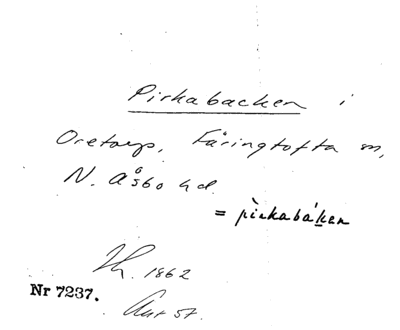 Pirkabacken i
Oretorp, Färingtofta sn,
N. Åsbo hd.
= pìrkabáken
Th. 1862
Nr 7237.